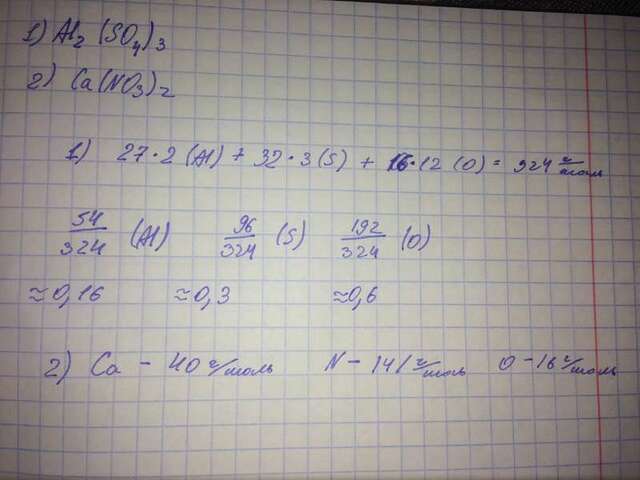 1) Al₂(SO₄)₃
2) Ca(NO₃)₂
1) 27·2(Al) + 32·3(S) + 16·12(O) = 324 г/моль
54/324 (Al) 96/324 (S) 192/324 (O)
≈0,16 ≈0,3 ≈0,6
2) Ca - 40 г/моль N - 14 г/моль O - 16 г/моль